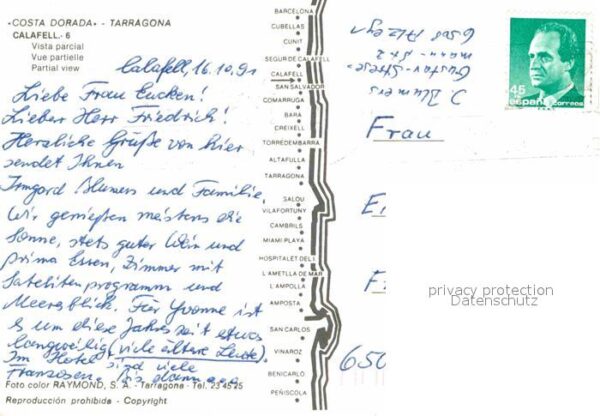 «COSTA DORADA» - TARRAGONA
CALAFELL.- 6
Vista parcial
Vue partielle
Partial view
Calafell, 16.10.91
Liebe Frau Eucken!
Lieber Herr Friedrich!
Herzliche Grüße von hier
sendet Ihnen
Irmgard Blumers und Familie,
Wir genießen meistens die
Sonne, stets guter Wein und
prima Essen, Zimmer mit
Satelitenprogramm und
Meeresblick. Für Yvonne ist
es um diese Jahreszeit etwas
langweilig (viele ältere Leute).
Im Hotel sind viele
Franzosen. Bis dann
Foto color RAYMOND, S. A. - Tarragona - Tel. 23 45 25
Reproducción prohibida - Copyright
BARCELONA
CUBELLAS
CUNIT
SEGUR DE CALAFELL
CALAFELL
SAN SALVADOR
COMARRUGA
BARA
CREIXELL
TORREDEMBARRA
ALTAFULLA
TARRAGONA
SALOU
VILAFORTUNY
CAMBRILS
MIAMI PLAYA
HOSPITALET DEL I.
L'AMETLLA DE MAR
L'AMPOLLA
AMPOSTA
SAN CARLOS
VINAROZ
BENICARLO
PEÑISCOLA
J. Blumers
Gustav-Strese-
mann-Str. 2
6508 Alzey
45
españa correos
Frau
E
F
650
privacy protection
Datenschutz